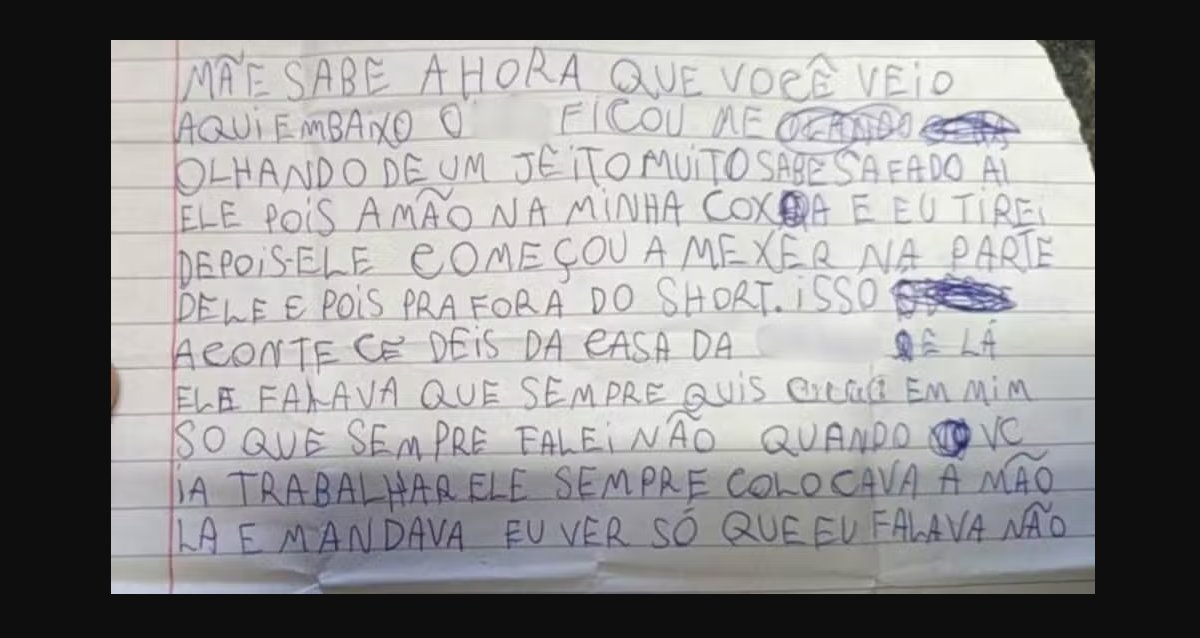 MÃE SABE A HORA QUE VOCÊ VEIO
AQUI EMBAIXO O FICOU ME
OLHANDO DE UM JEITO MUITO SABE SAFADO AI
ELE POIS A MÃO NA MINHA COXA E EU TIREI
DEPOIS ELE COMEÇOU A MEXER NA PARTE
DELE E POIS PRA FORA DO SHORT. ISSO
ACONTECE DEIS DA CASA DA DE LÁ
ELE FALAVA QUE SEMPRE QUIS EM MIM
SO QUE SEMPRE FALEI NÃO QUANDO VC
IA TRABALHAR ELE SEMPRE COLOCAVA A MÃO
LA E MANDAVA EU VER SÓ QUE EU FALAVA NÃO